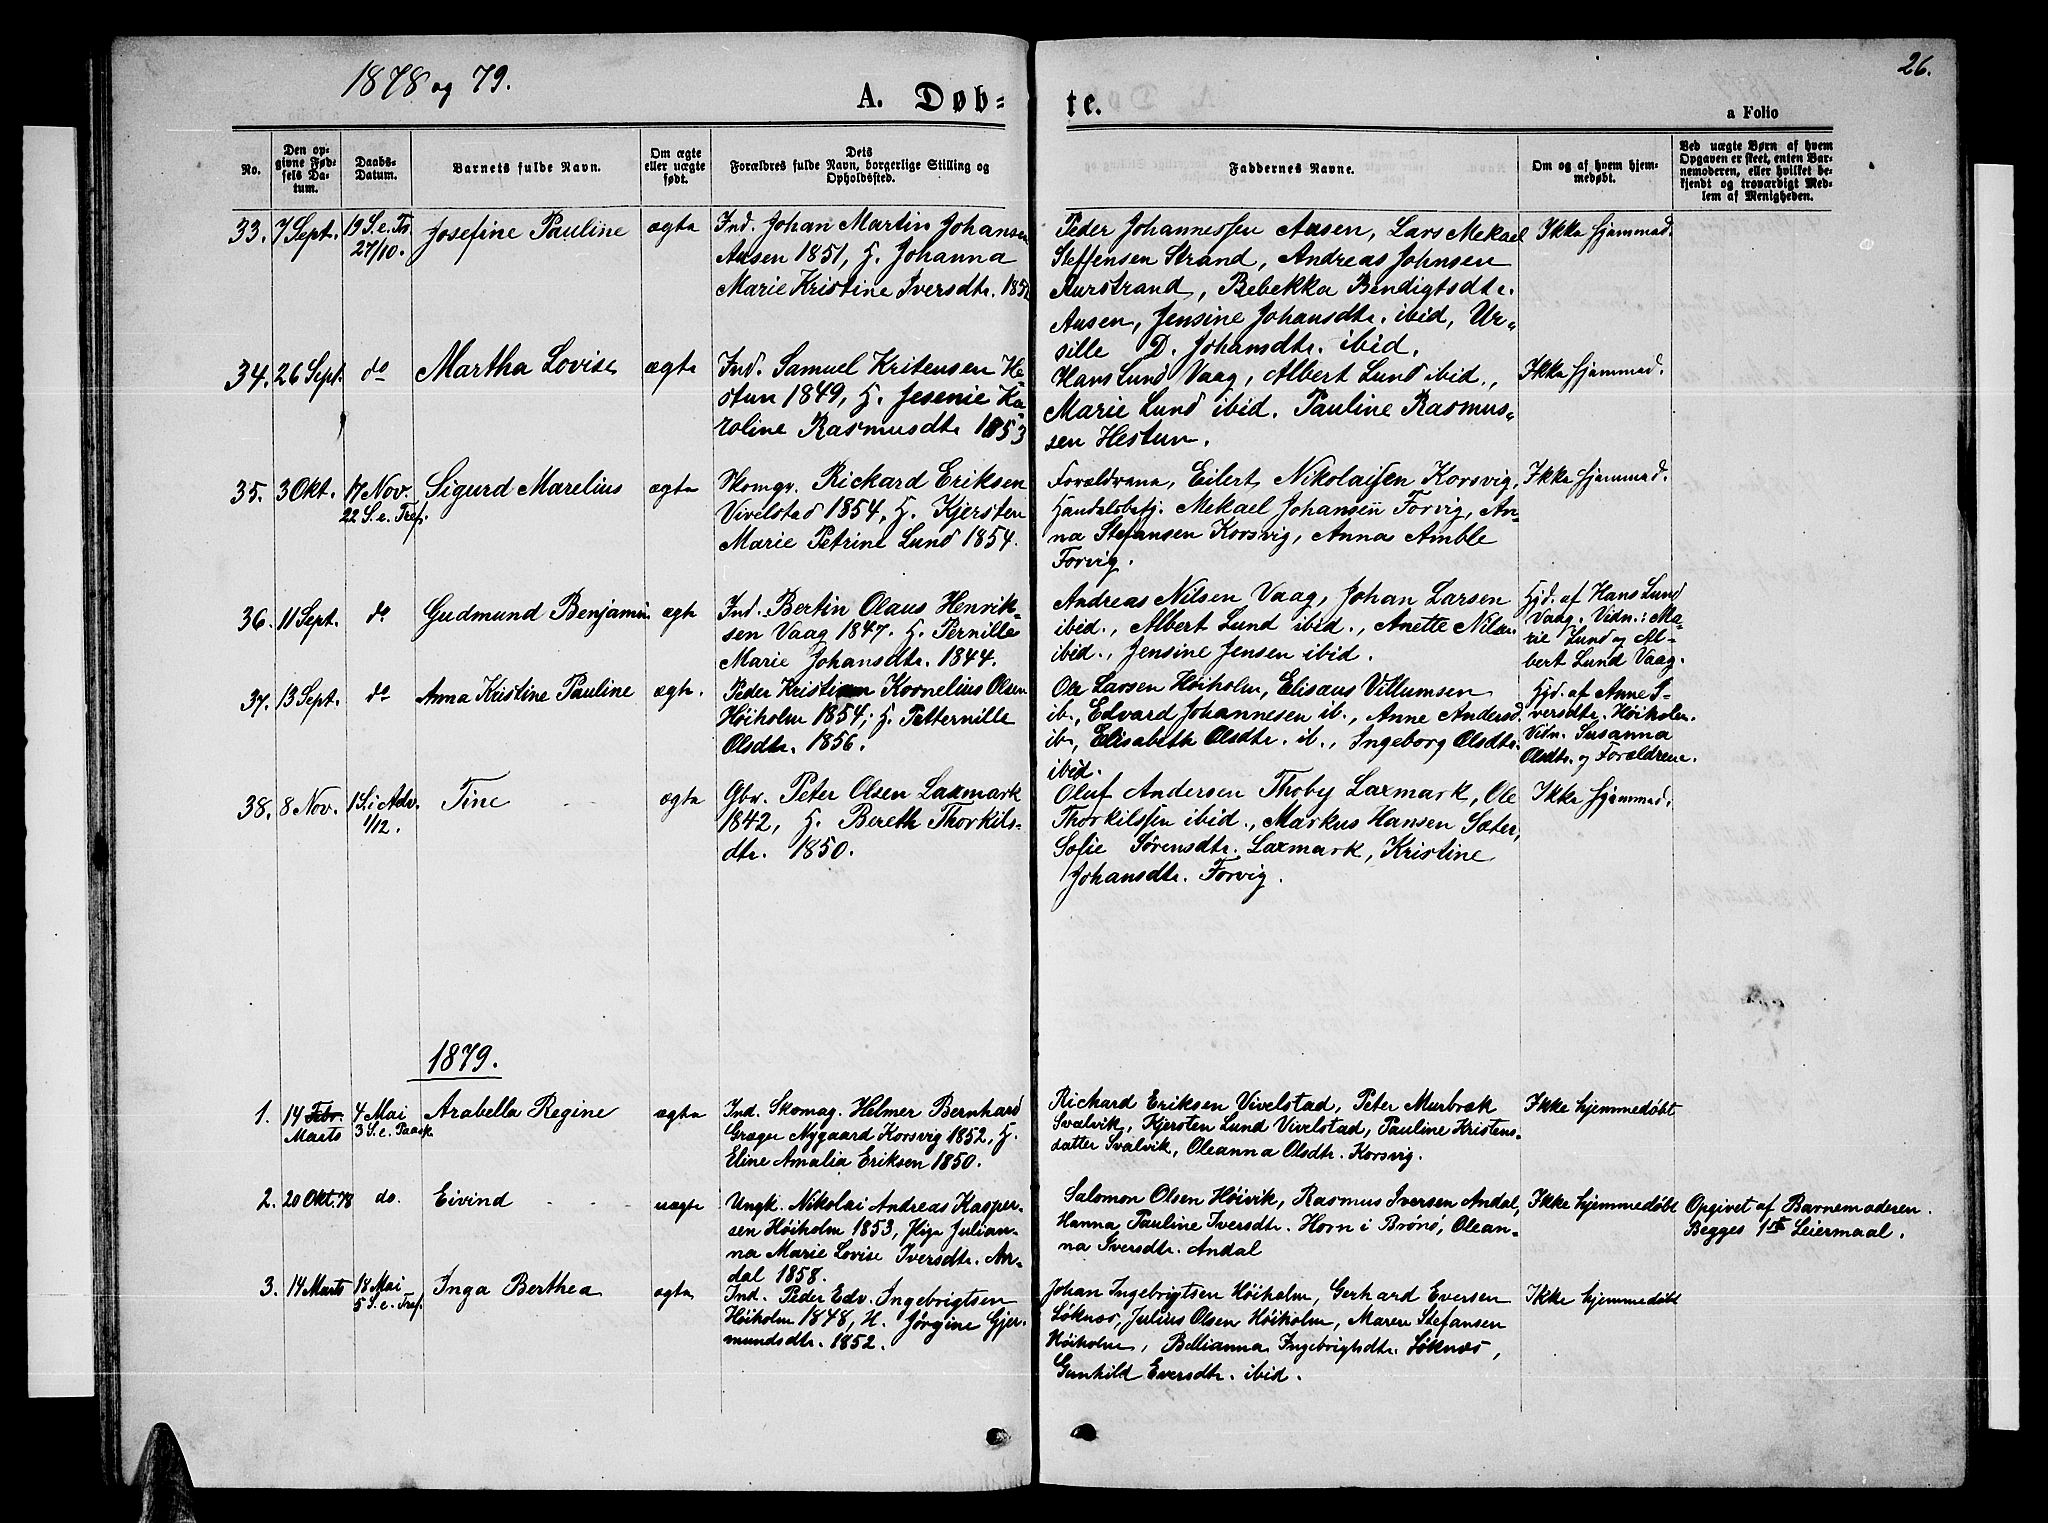 1878 og 79.
26.
A. Døb=
te.
a Folio
No.
Den op-
givne Fød-
sels Da-
tum.
Daabs-
Datum.
Barnets fulde Navn.
Om ægte
eller uægte
født.
Dets
Forældres fulde Navn, borgerlige Stilling og
Opholdssted.
Faddernes Navne.
Om og af hvem hjem-
medøbt.
Ved uægte Børn af hvem
Opgaven er skeet, enten Bar-
nemoderen, eller hvilket be-
kjendt og troværdigt Med-
lem af Menigheden.
33.
7 Sept.
19 S. e. Tr.
27/10.
Josefine Pauline
ægte
Ind. Johan Martin Johansen
Ausen 1851, H. Johanna
Marie Kristine Iversdtr. 185
Peder Johannessen Ausen, Lars Mekael
Steffensen Strand, Andreas Johnsen
Aurstrand, Bebekka Bendigtsdtr.
Ausen, Jensine Johansdtr. ibid, Ur-
sille D. Johansdtr. ibid.
Ikke hjemmed.
34.
26 Sept.
do
Martha Lovise
ægte
Ind. Samuel Kritensen He-
stun 1849, H. Jesenie Ka-
roline Rasmusdtr 1853
Hans Lund Vaag, Albert Lund ibid.,
Marie Lund ibid. Pauline Rasmus-
sen Hestun.
Ikke hjemmed.
35.
3 Okt.
17 Nov.
22 S. e. Tref.
Sigurd Marelius
ægte
Skomgr. Rickard Eriksen
Vivelstad 1854, H. Kjersten
Marie Petrine Lund 1854.
Forældrene, Eilert Nikolaisen Korsvig,
Handelsbetj. Mekael Johansen Forvig, An-
na Stefansen Korsvig, Anna Amble
Forvig.
Ikke hjemmed.
36.
11 Sept.
do
Gudmund Benjamin
ægte
Ind. Bertin Olaus Henrik-
sen Vaag 1847. H. Pernille
Marie Johansdtr. 1844.
Andreas Nilsen Vaag, Johan Larsen
ibid., Albert Lund ibid., Anette Nilsen
ibid., Jensine Jensen ibid.
Hjd. af Hans Lund
Vaag. Vidn.: Ma-
rie Lund og Al-
bert Lund Vaag.
37.
13 Sept.
do
Anna Kristine Pauline
ægte.
Peder Kristian Kornelius Olsen
Høiholm 1854, H. Petternille
Olsdtr. 1856.
Ole Larsen Høiholm, Elisæus Villumsen
ib., Edvard Johannesen ib., Anne Andersd.
ib., Elisabeth Olsdtr. ib., Ingeborg Olsdtr.
ibid.
Hjd. af Anne S-
versdtr. Høiholm.
Vidn. Susanna
Olsdtr. og Forældrene.
38.
8 Nov.
1 S. i Adv.
1/12.
Tine
ægte
Gbr. Peter Olsen Laxmark
1842, H. Bereth Thorkils-
dtr. 1850.
Oluf Andersen Thoby Laxmark, Ole
Thorkilssen ibid., Markus Hansen Sæter,
Sofie Sørensdtr. Laxmark, Kristine
Johansdtr. Forvig.
Ikke hjemmed.
1879.
1.
14 Febr.
Marts
4 Mai
3 S. e. Paask.
Arabella Regine
ægte
Ind. Skomag. Helmer Bernhard
Græger Nygaard Korsvig 1852, H.
Eline Amalia Eriksen 1850.
Richard Eriksen Vivelstad, Peter Murbræk
Svalvik, Kjersten Lund Vivelstad, Pauline Kristens-
datter Svalvik, Oleanna Olsdtr. Korsvig.
Ikke hjemmedøbt
2.
20 Okt. 78
do.
Eivind
uægte
Ungk. Nikolai Andreas Kasper-
sen Høiholm 1853, Pige Julian-
na Marie Lovise Iversdtr. An-
dal 1858.
Salomon Olsen Høivik, Rasmus Iversen Andal,
Hanna Pauline Iversdtr. Horn i Brønø, Olean-
na Iversdtr. Andal
Ikke hjemmedøbt
Opgivet af Barnemoderen.
Begges 1ste Leiermaal.
3.
14 Marts
18 Mai
5 S. e. Tref.
Inga Berthea
ægte
Ind. Peder Edv. Ingebrigtsen
Høiholm 1848, H. Jørgine Gjer-
mundsdtr. 1852.
Johan Ingebrigtsen Høiholm, Gerhard Eversen
Søknæs, Julius Olsen Høiholm, Maren Stefansen
Høiholm, Bellianna Ingebrigtsdtr. Søknæs,
Gunhild Eversdtr. ibid.
Ikke hjemmedøbt